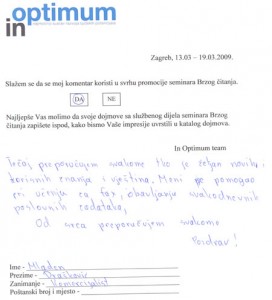 in optimum
Zagreb, 13.03 – 19.03.2009.
Slažem se da se moj komentar koristi u svrhu promocije seminara Brzog čitanja.
DA NE
Najljepše Vas molimo da svoje dojmove sa službenog dijela seminara Brzog
čitanja zapišete ispod, kako bismo Vaše impresije uvrstili u katalog dojmova.
In Optimum team
Tečaj preporučujem svakome tko je željan novih i
korisnih znanja i vještina. Meni je pomogao
pri učenju za fax, obavljanju svakodnevnih
poslovnih zadataka,
Od srca preporučujem svakome
Pozdrav!
Ime - Mladen
Prezime - Drašković
Zanimanje - Komercijalist
Poštanski broj i mjesto -